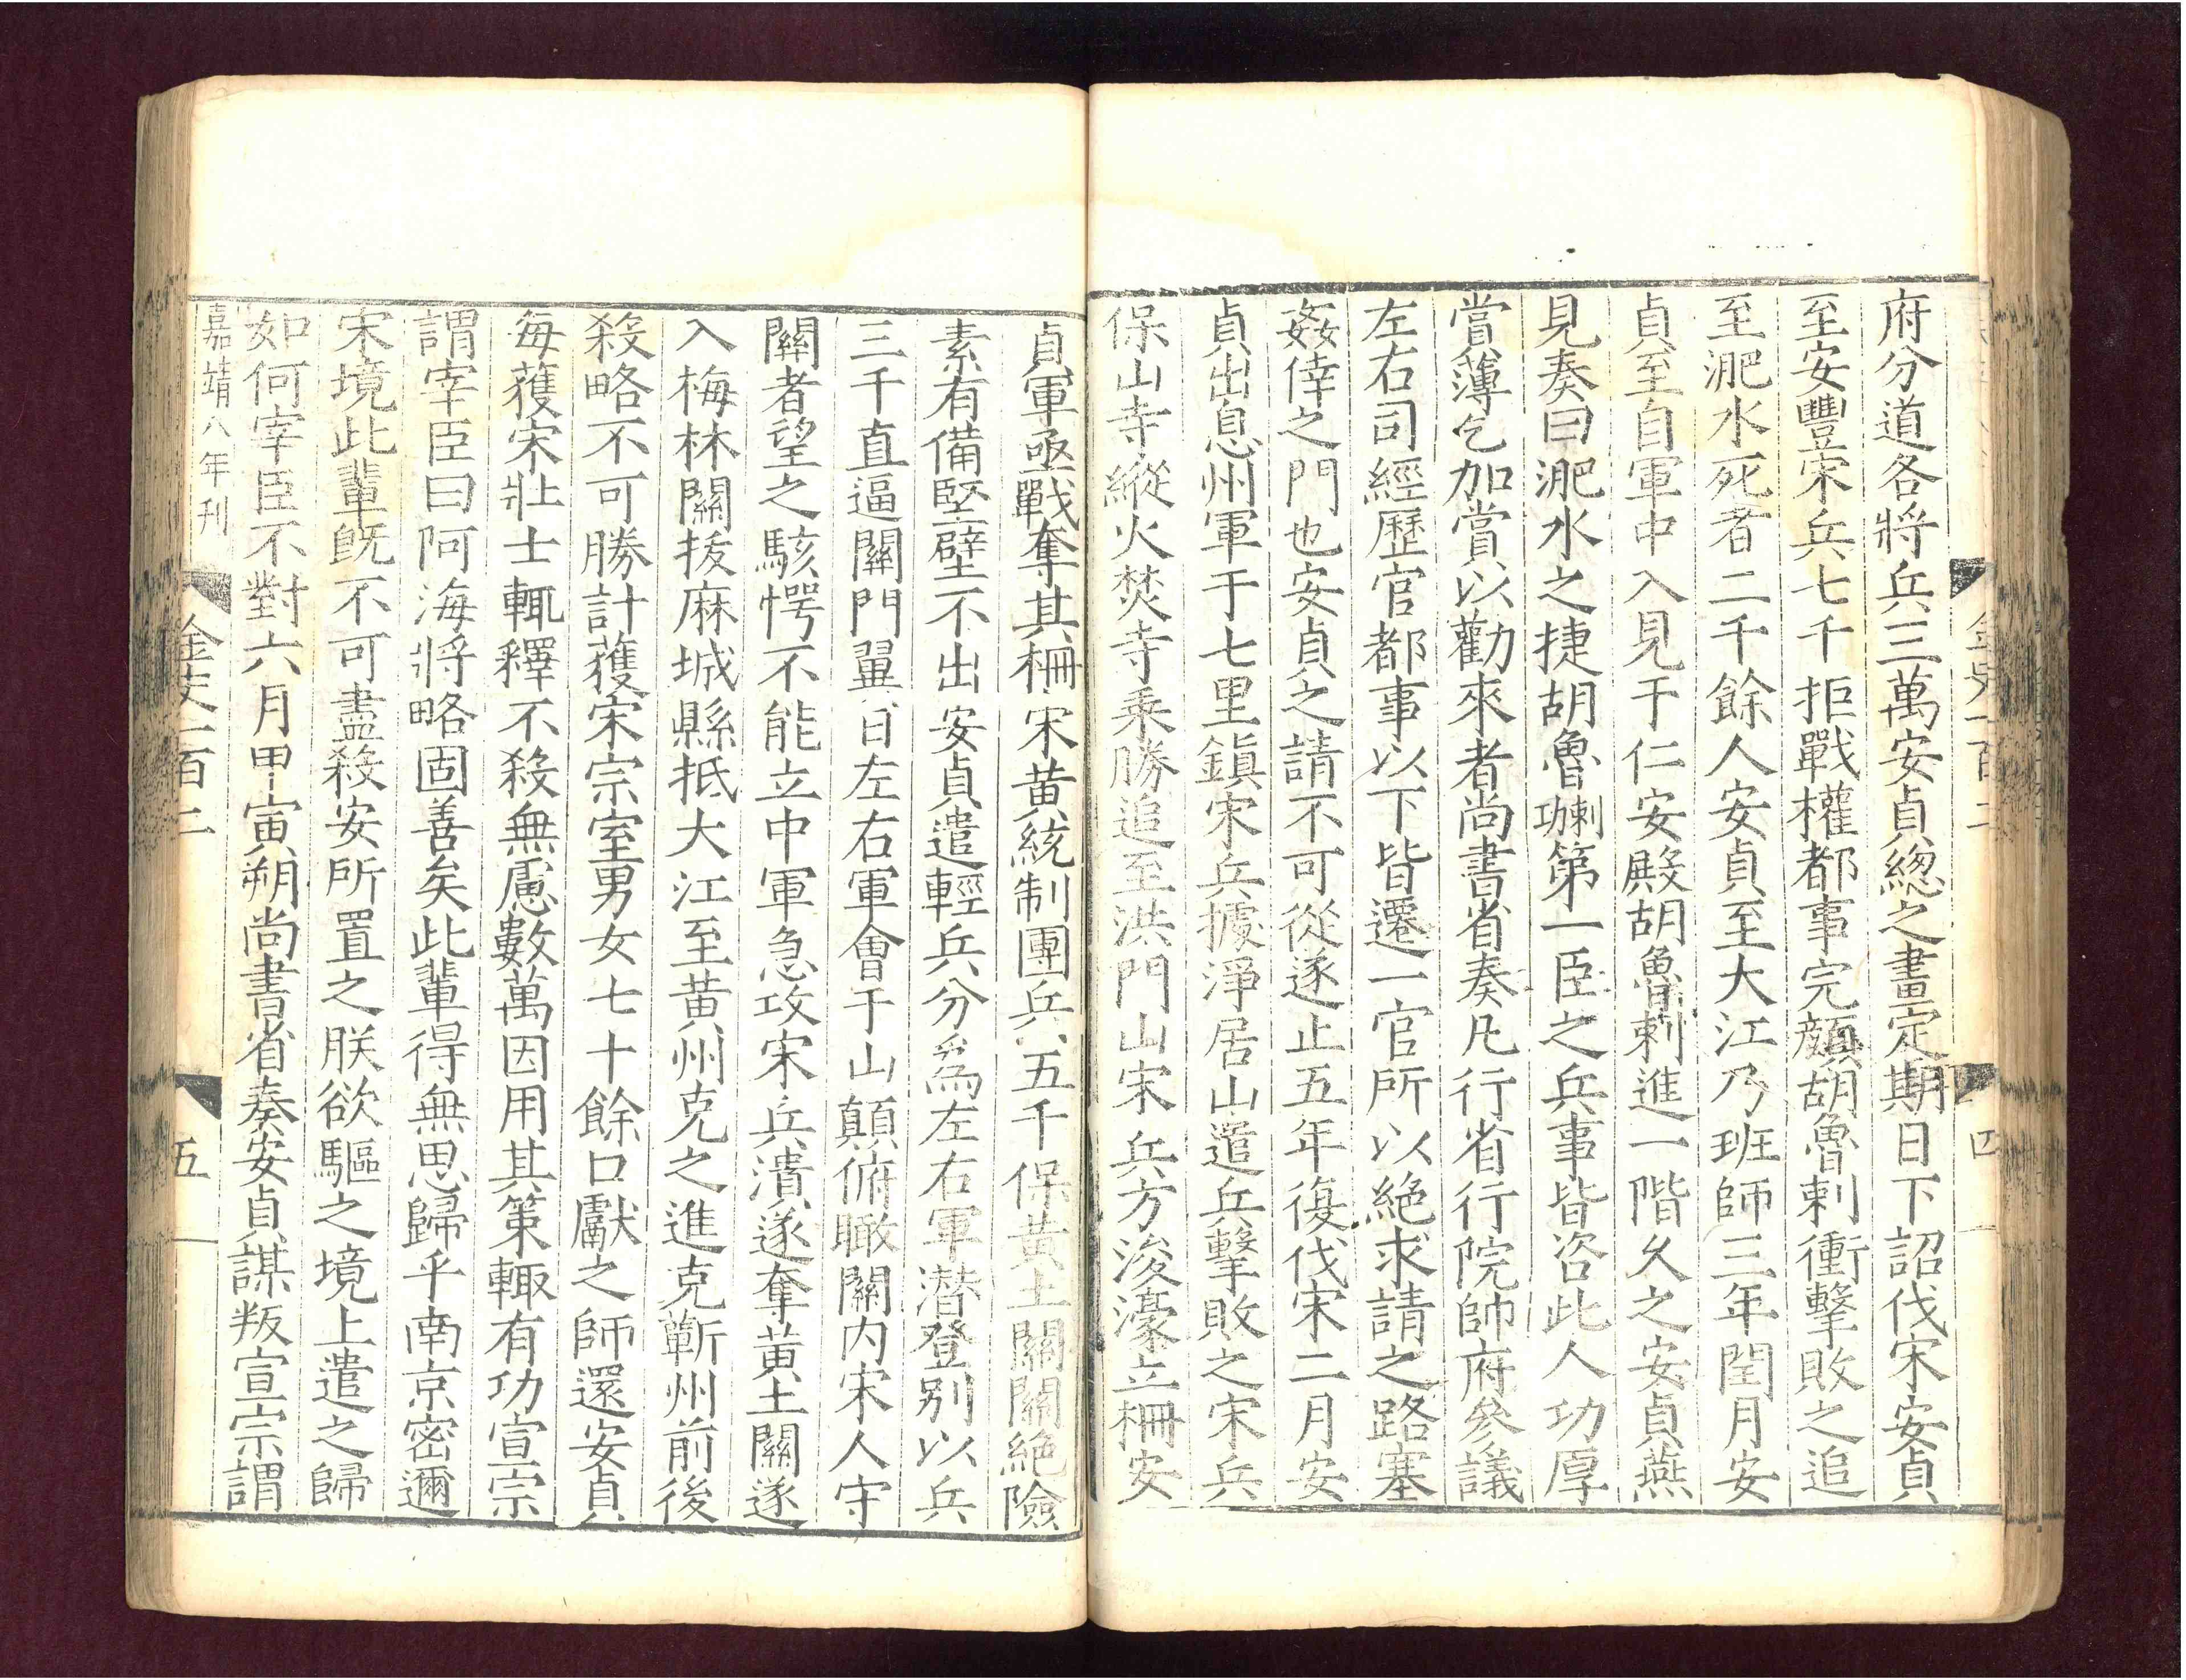 金史一百二
四
府分道各將兵三萬安貞緫之畫定期日下詔伐宋安貞
至安豐宋兵七千拒戰權都事完顏胡魯剌衝擊敗之追
至淝水死者二千餘人安貞至大江乃班師三年閏月安
貞至自軍中入見于仁安殿胡魯剌進一階乆之安貞燕
見奏曰淝水之捷胡魯剌功第一臣之兵事皆咨此人功厚
賞薄乞加賞以勸來者尚書省奏凡行省行院帥府參議
左右司經歷官都事以下皆遷一官所以絶求請之路塞
姦倖之門也安貞之請不可從遂止五年復伐宋二月安
貞出息州軍于七里鎮宋兵據淨居山遣兵擊敗之宋兵
保山寺縱火焚寺乘勝追至洪門山宋兵方浚濠立柵安
貞軍亟戰奪其柵宋黃統制團兵五千保黃土關關絶險
素有備堅壁不出安貞遣輕兵分爲左右軍潜登别以兵
三千直逼關門翼日左右軍會于山顛俯瞰關内宋人守
關者望之駭愕不能立中軍急攻宋兵潰遂奪黃土關遂
入梅林關拔麻城縣抵大江至黃州克之進克蘄州前後
殺略不可勝計獲宋宗室男女七十餘口獻之師還安貞
每獲宋壯士輒釋不殺無慮數萬因用其策輒有功宣宗
謂宰臣曰阿海將略固善矣此輩得無思歸乎南京密邇
宋境此輩旣不可盡殺安所置之朕欲驅之境上遣之歸
如何宰臣不對六月甲寅朔尚書省奏安貞謀叛宣宗謂
嘉靖八年刊
金史一百二
五